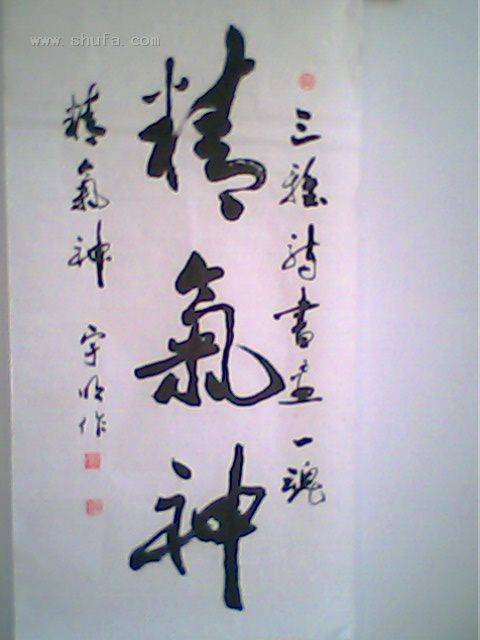 www.shufa.com
三雅诗書画一魂
精氣神
精氣神 宇明作